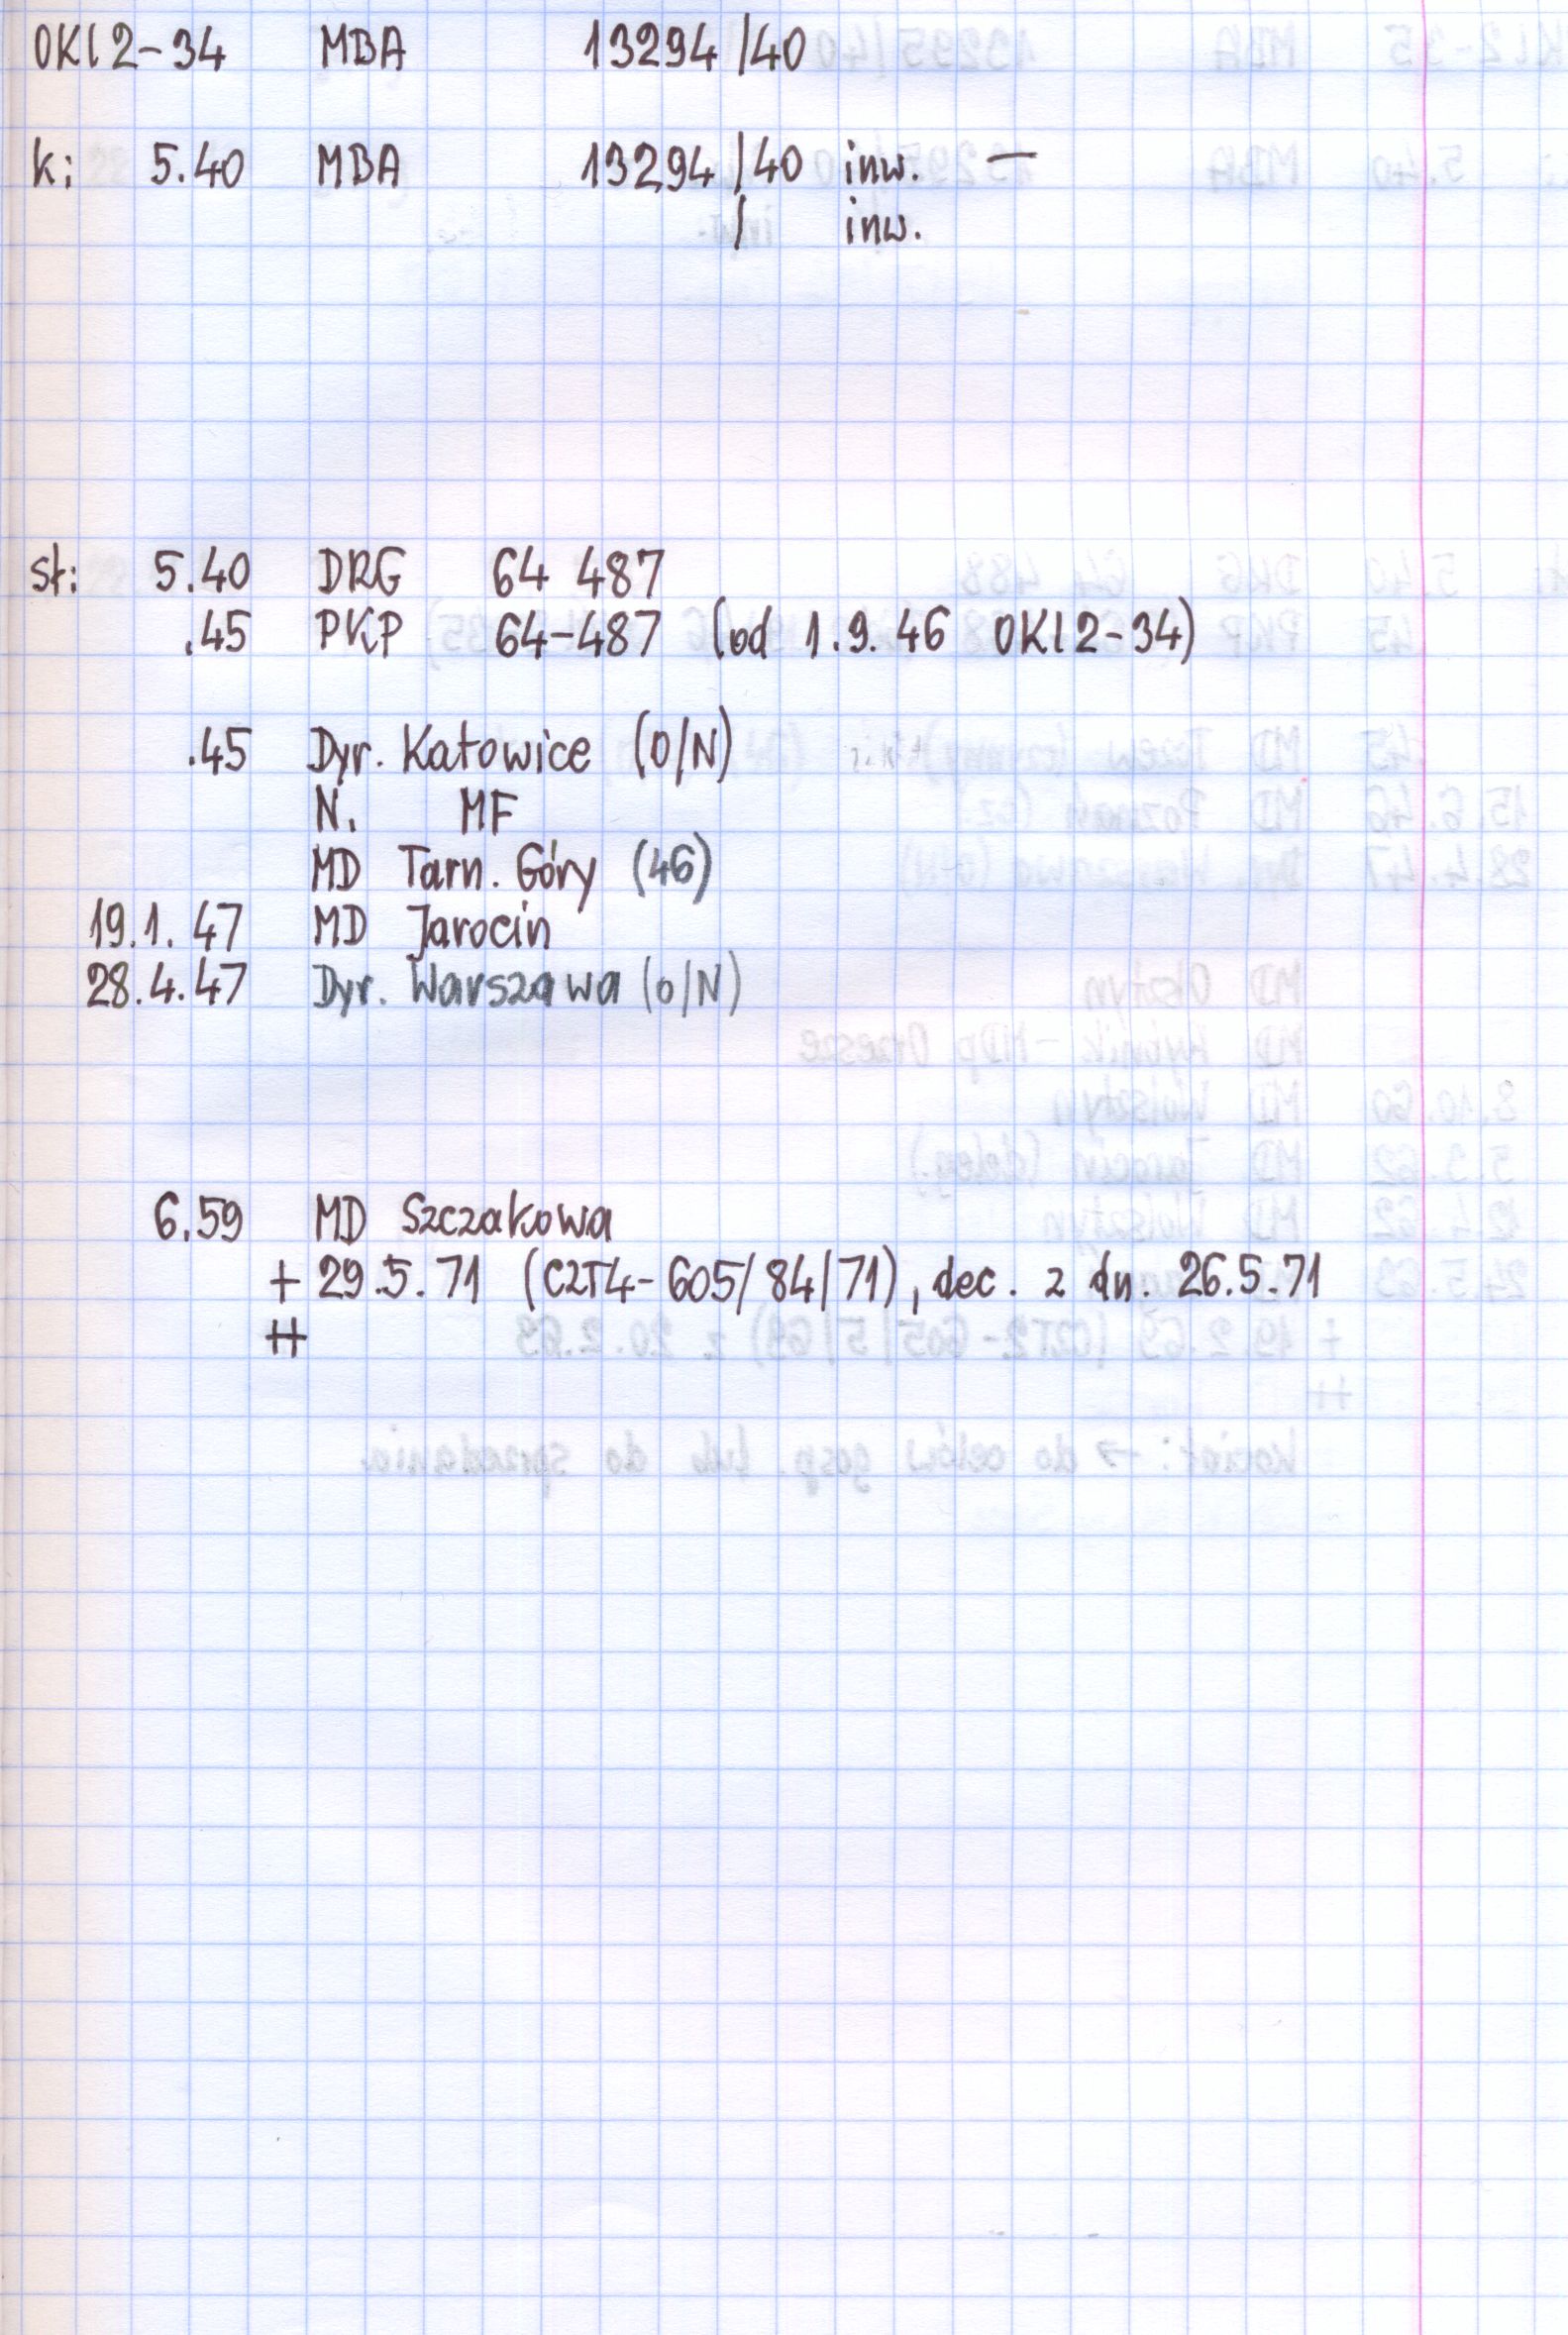 OKl2-34 MBA 13294/40
k: 5.40 MBA 13294/40 inw. —
/ inw.
st: 5.40 DRG 64 487
.45 PKP 64-487 (od 1.9.46 OKl2-34)
.45 Dyr. Katowice (O/N)
N. MF
MD Tarn. Góry (46)
19.1.47 MD Jarocin
28.4.47 Dyr. Warszawa (O/N)
6.59 MD Szczakowa
+ 29.5.71 (CZT4-605/84/71), dec. z dn. 26.5.71
++